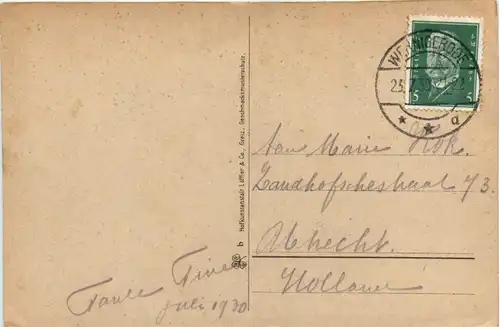 WERNIGERODE
5 5
23. 7. 30
a
Aan Marie Hok.
Zandhofschestraat 73.
Utrecht.
Holland
Tante Fine
juli 1930
b Hofkunstanstalt Löffler & Co., Greiz. Geschmacksmusterschutz.